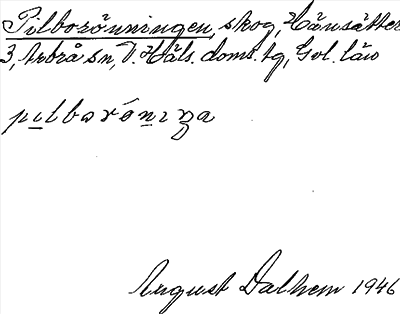 Pilborönningen, skog, Hänsätter
3, Arbrå sn, V. Häls. doms. tg, Gvl. län
pilboröninga
August Dalhem 1946